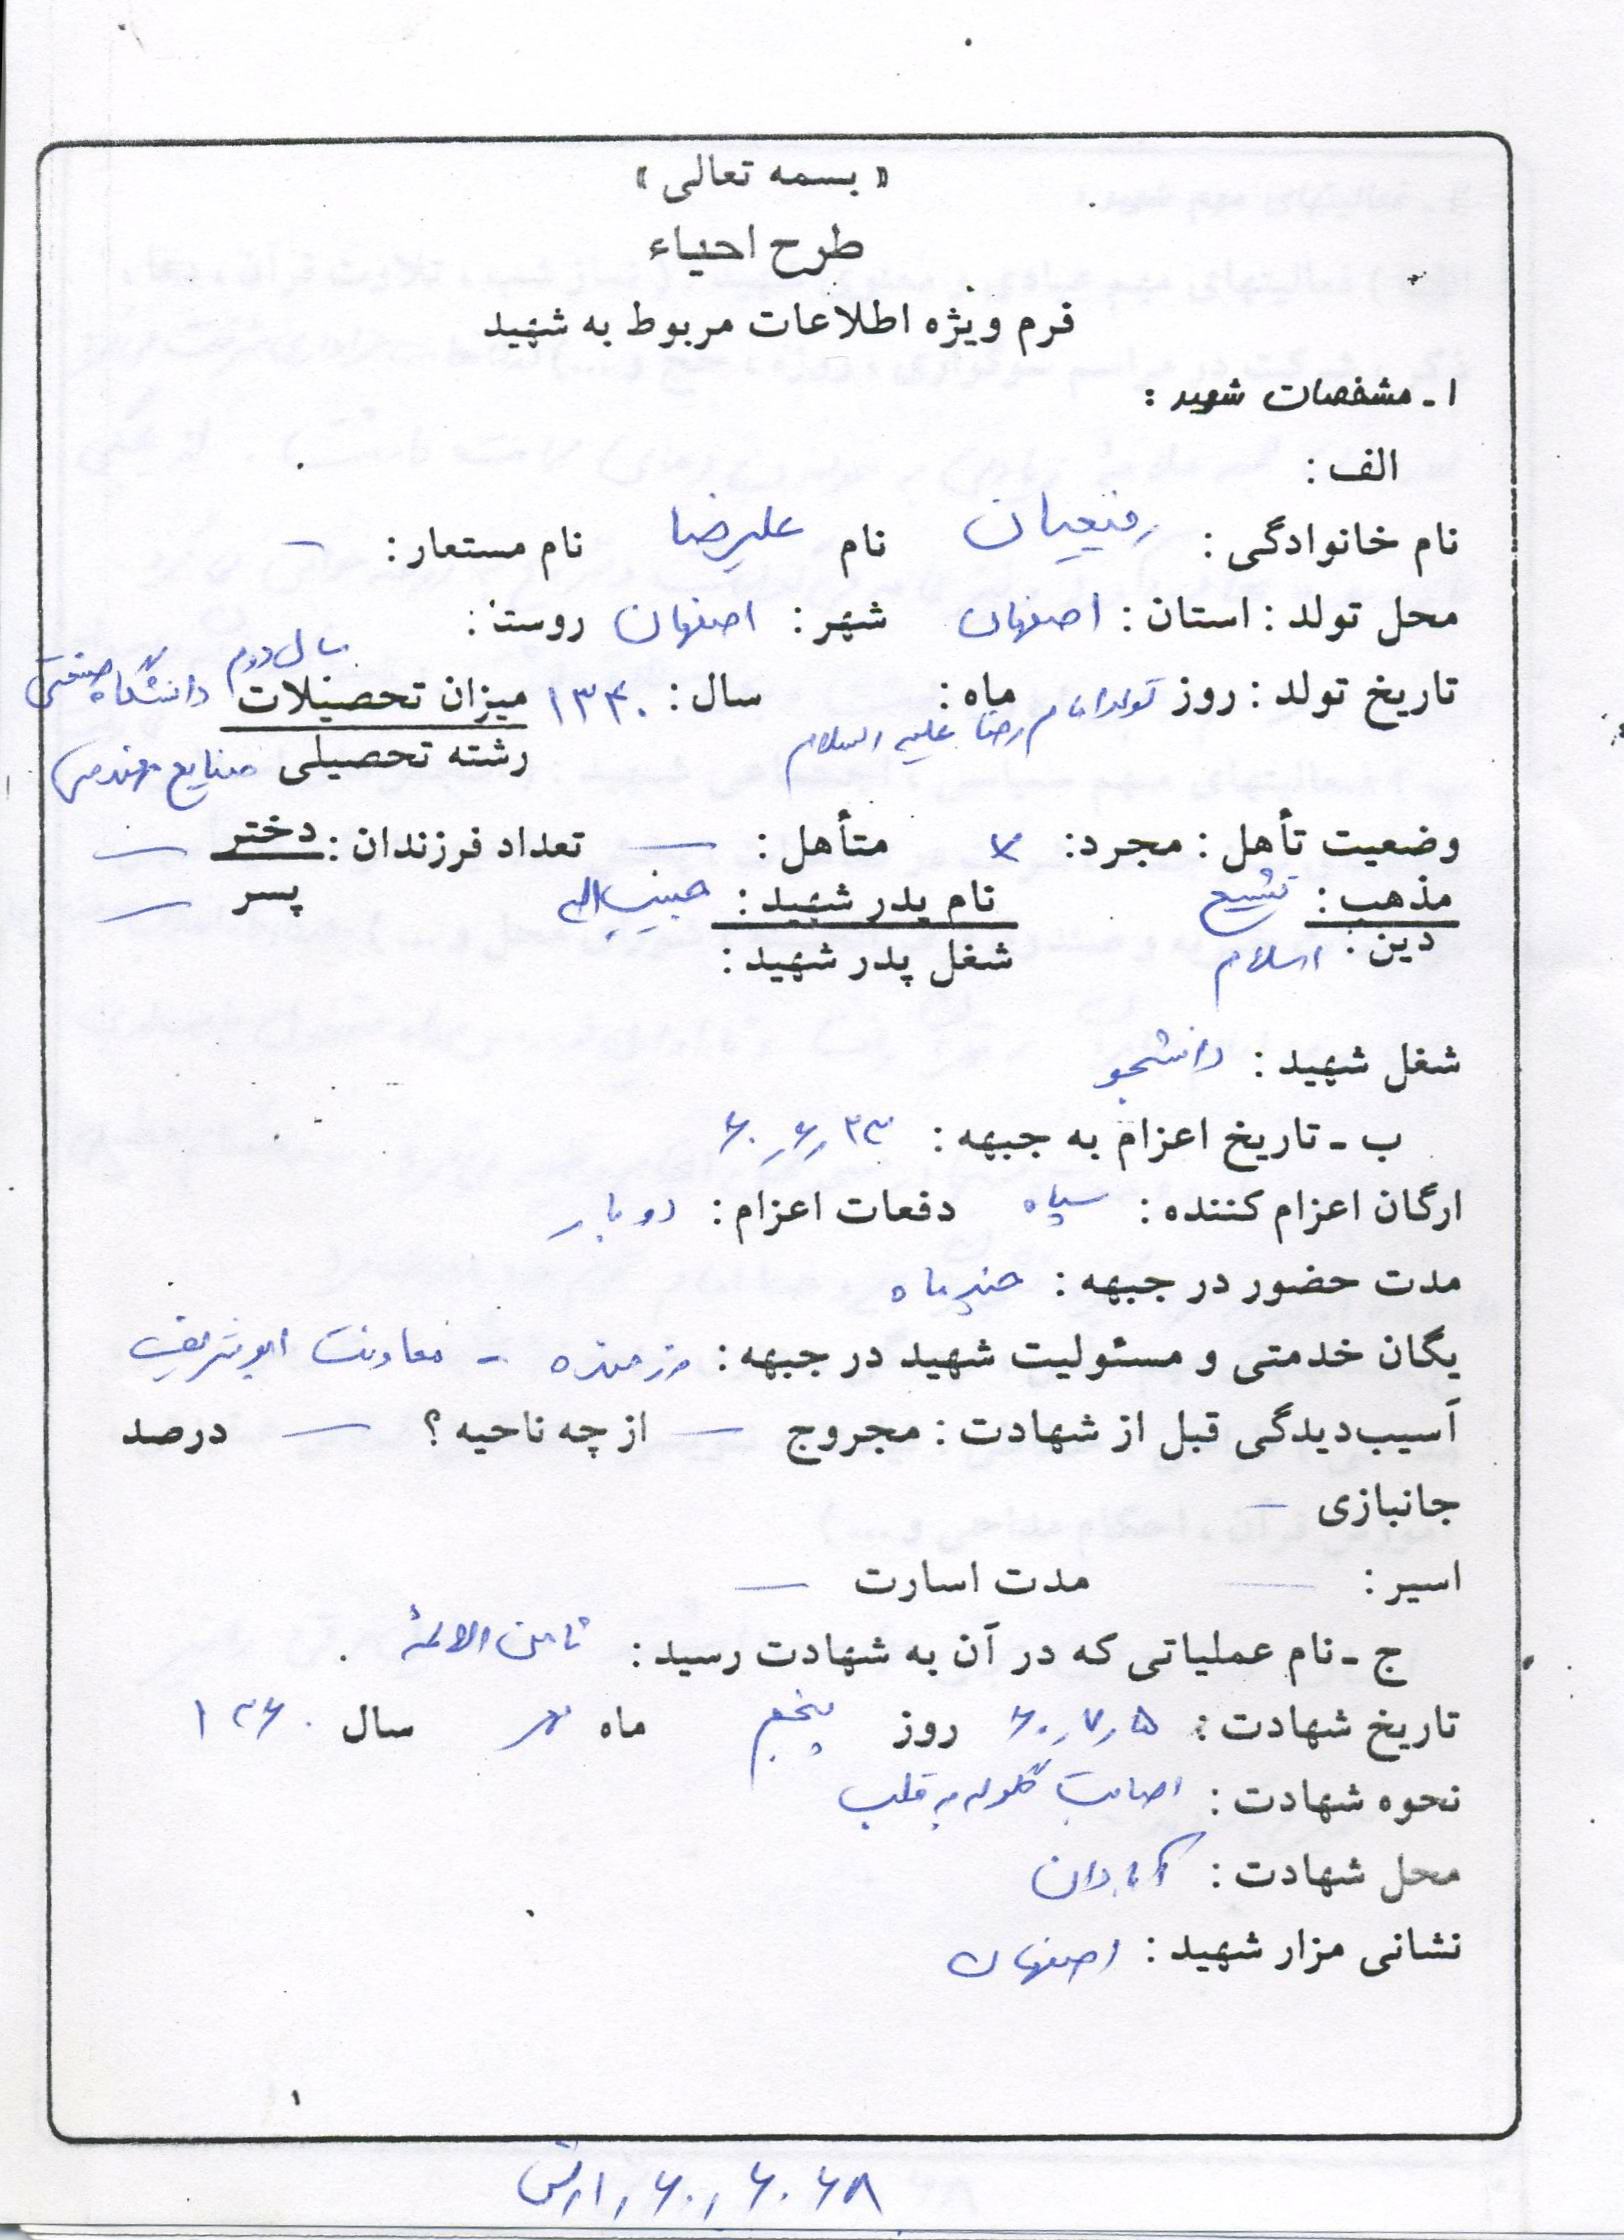 « بسمه تعالی »
طرح احیاء
فرم ویژه اطلاعات مربوط به شهید
۱ـ مشخصات شهید :
الف :
نام خانوادگی : رفیعیان نام علیرضا نام مستعار : —
محل تولد : استان : اصفهان شهر : اصفهان روستا :
تاریخ تولد : روز تولد امام رضا علیه السلام ماه : سال : ۱۳۴۰ میزان تحصیلات سال دوم دانشگاه صنعتی
رشته تحصیلی صنایع مهندسی
وضعیت تأهل : مجرد : × متأهل : — تعداد فرزندان : دختر —
پسر —
مذهب : تشیع نام پدر شهید : حبیب اله
دین : اسلام شغل پدر شهید :
شغل شهید : دانشجو
ب ـ تاریخ اعزام به جبهه : ۶۰,۶,۲۳
ارگان اعزام کننده : سپاه دفعات اعزام : دوبار
مدت حضور در جبهه : چند ماه
یگان خدمتی و مسئولیت شهید در جبهه : رزمنده - معاونت ابوشریف
آسیب‌دیدگی قبل از شهادت : مجروح — از چه ناحیه ؟ — درصد
جانبازی —
اسیر : — مدت اسارت —
ج ـ نام عملیاتی که در آن به شهادت رسید : ثامن الائمة .
تاریخ شهادت : ۶۰,۷,۵ روز پنجم ماه مهر سال ۱۳۶۰
نحوه شهادت : اصابت گلوله به قلب
محل شهادت : آبادان
نشانی مزار شهید : اصفهان
۱